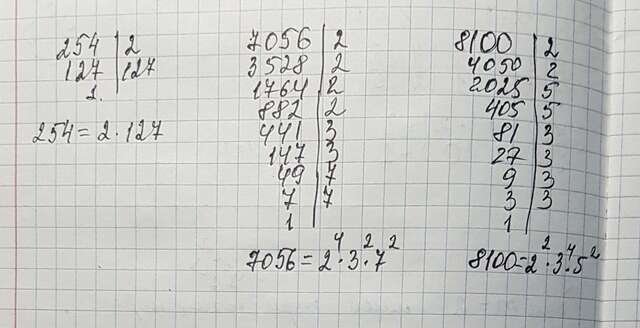 254 | 2
127 | 127
1.
254 = 2 · 127
7056 | 2
3528 | 2
1764 | 2
882 | 2
441 | 3
147 | 3
49 | 7
7 | 7
1
7056 = 2⁴ · 3² · 7²
8100 | 2
4050 | 2
2025 | 5
405 | 5
81 | 3
27 | 3
9 | 3
3 | 3
1
8100 = 2² · 3⁴ · 5²